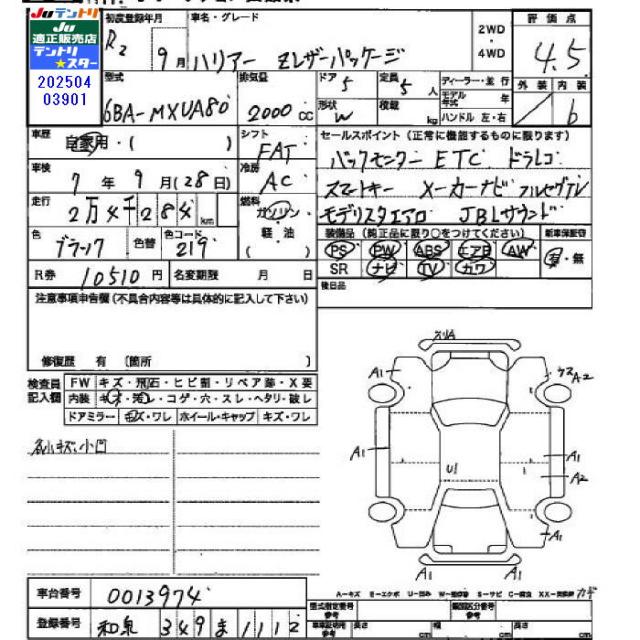 Juテントリ
Ju
適正販売店
テントリ
★スター
202504
03901
初度登録年月
R2 9月
車名・グレード
ハリアー Zレザーパッケージ
2WD
・
4WD
評価点
4.5
型式
6BA-MXUA80
排気量
2000 CC
ドア
5
定員
5人
形状
W
積載
kg
ディーラー・並行
モデル年式 年
ハンドル 左・右
外装
内装
6
車歴
自家用・( )
シフト
FAT
セールスポイント(正常に機能するものに限ります)
バックモニター ETC ドラレコ
スマートキー メーカーナビ フルセグTV
モデリスタエアロ JBLサウンド
車検
7年9月(28日)
冷房
AC
走行
2万4千284 km
燃料
ガソリン
軽油
( )
色
ブラック
色替
色コード
219
装備品(純正品に限り○をつけてください)
新車保証書
PS PW ABS エアB AW
有・無
SR ナビ TV カワ
R券
10510円
名変期限 月 日
後日品
注意事項申告欄(不具合内容等は具体的に記入して下さい)
修復歴 有 [箇所 ]
検査員
記入欄
FW キズ・飛石・ヒビ割・リペア跡・X要
内装 キズ・汚れ・コゲ・穴・スレ・ヘタリ・破レ
ドアミラー キズ・ワレ ホイール・キャップ キズ・ワレ
小キズ、小凹
A1
A2
A1
U1
A1
A2
A1
A1
A1
車台番号
0013974
登録番号
和泉 349 ま 1112
A-キズ E-エクボ U-凹み W-補修跡 S-サビ C-腐食
型式指定番号
参考
類別区分番号
参考
車車証明用
参考
長さ cm
幅 cm
高さ cm